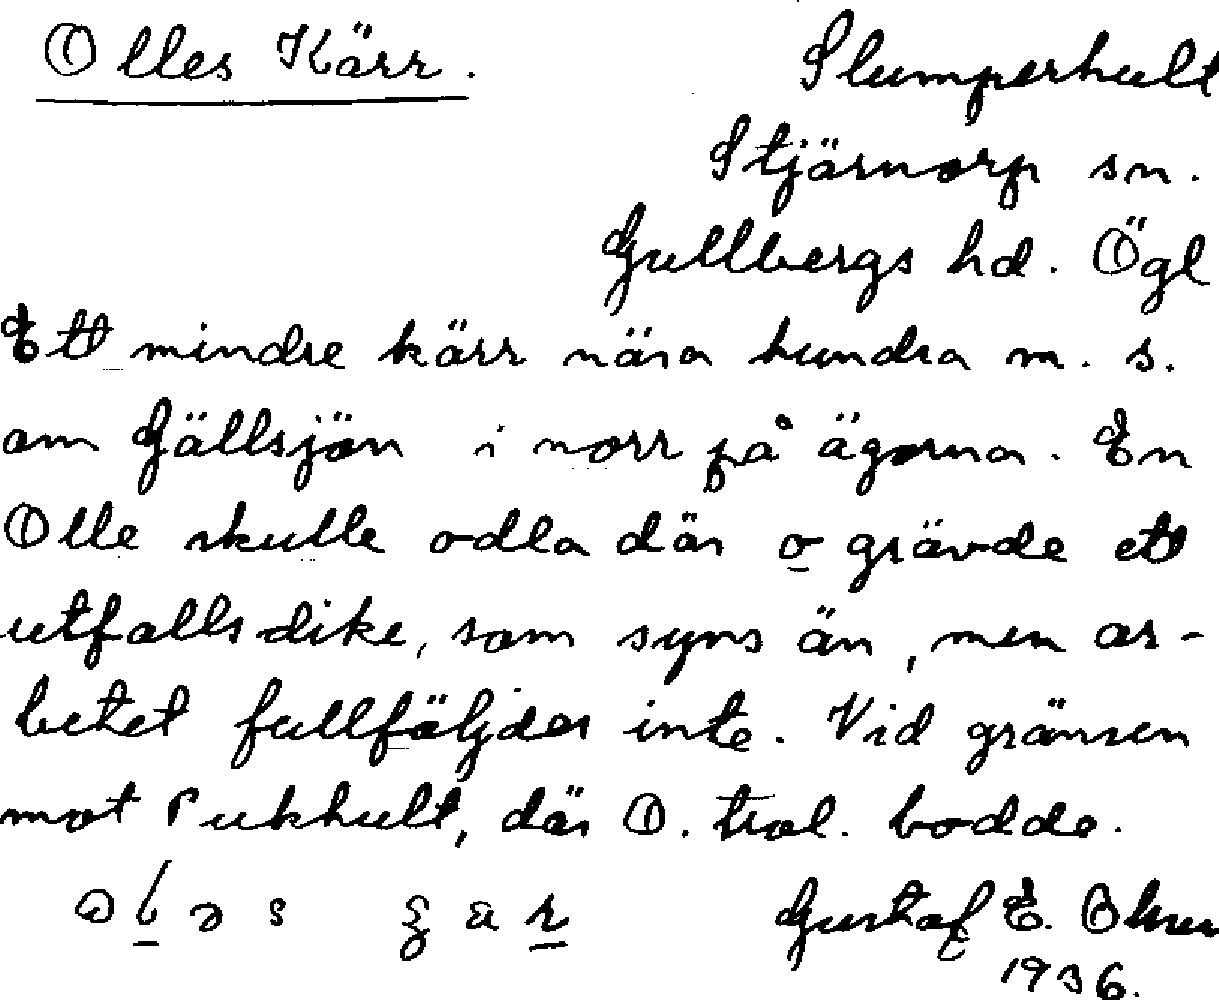 Olles Kärr. Slumperhult
Stjärnorp sn.
Gullbergs hd. Ögl
Ett mindre kärr nära hundra m. s.
om Gällsjön i norr på ägorna. En
Olle skulle odla där o grävde ett
utfallsdike, som syns än, men ar-
betet fullföljdes inte. Vid gränsen
mot Pukhult, där O. trol. bodde.
Gustaf E.
1936.